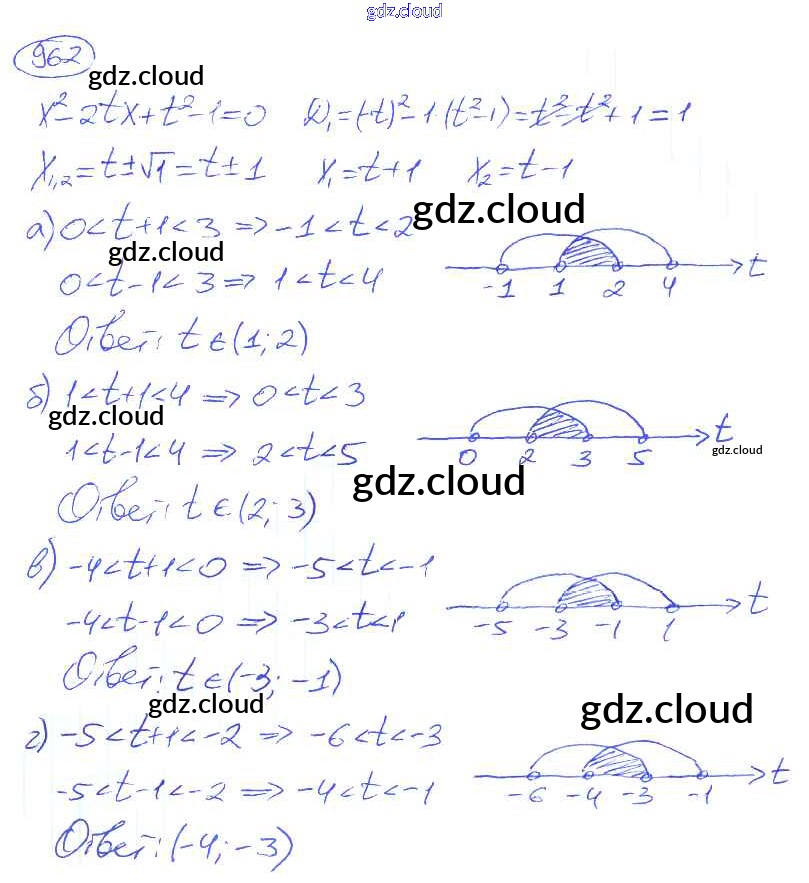 gdz.cloud
962
gdz.cloud
x²-2tx+t²-1=0 D₁=(-t)²-1·(t²-1)=t²-t²+1=1
x₁,₂=t±√1=t±1 x₁=t+1 x₂=t-1
а) 0<t+1<3 => -1<t<2
gdz.cloud
gdz.cloud
0<t-1<3 => 1<t<4
-1 1 2 4 t
Ответ: t∈(1; 2)
б) 1<t+1<4 => 0<t<3
gdz.cloud
1<t-1<4 => 2<t<5
0 2 3 5 t
gdz.cloud
gdz.cloud
Ответ: t∈(2; 3)
в) -4<t+1<0 => -5<t<-1
-4<t-1<0 => -3<t<1
-5 -3 -1 1 t
Ответ: t∈(-3; -1)
gdz.cloud
gdz.cloud
г) -5<t+1<-2 => -6<t<-3
-5<t-1<-2 => -4<t<-1
-6 -4 -3 -1 t
Ответ: (-4; -3)